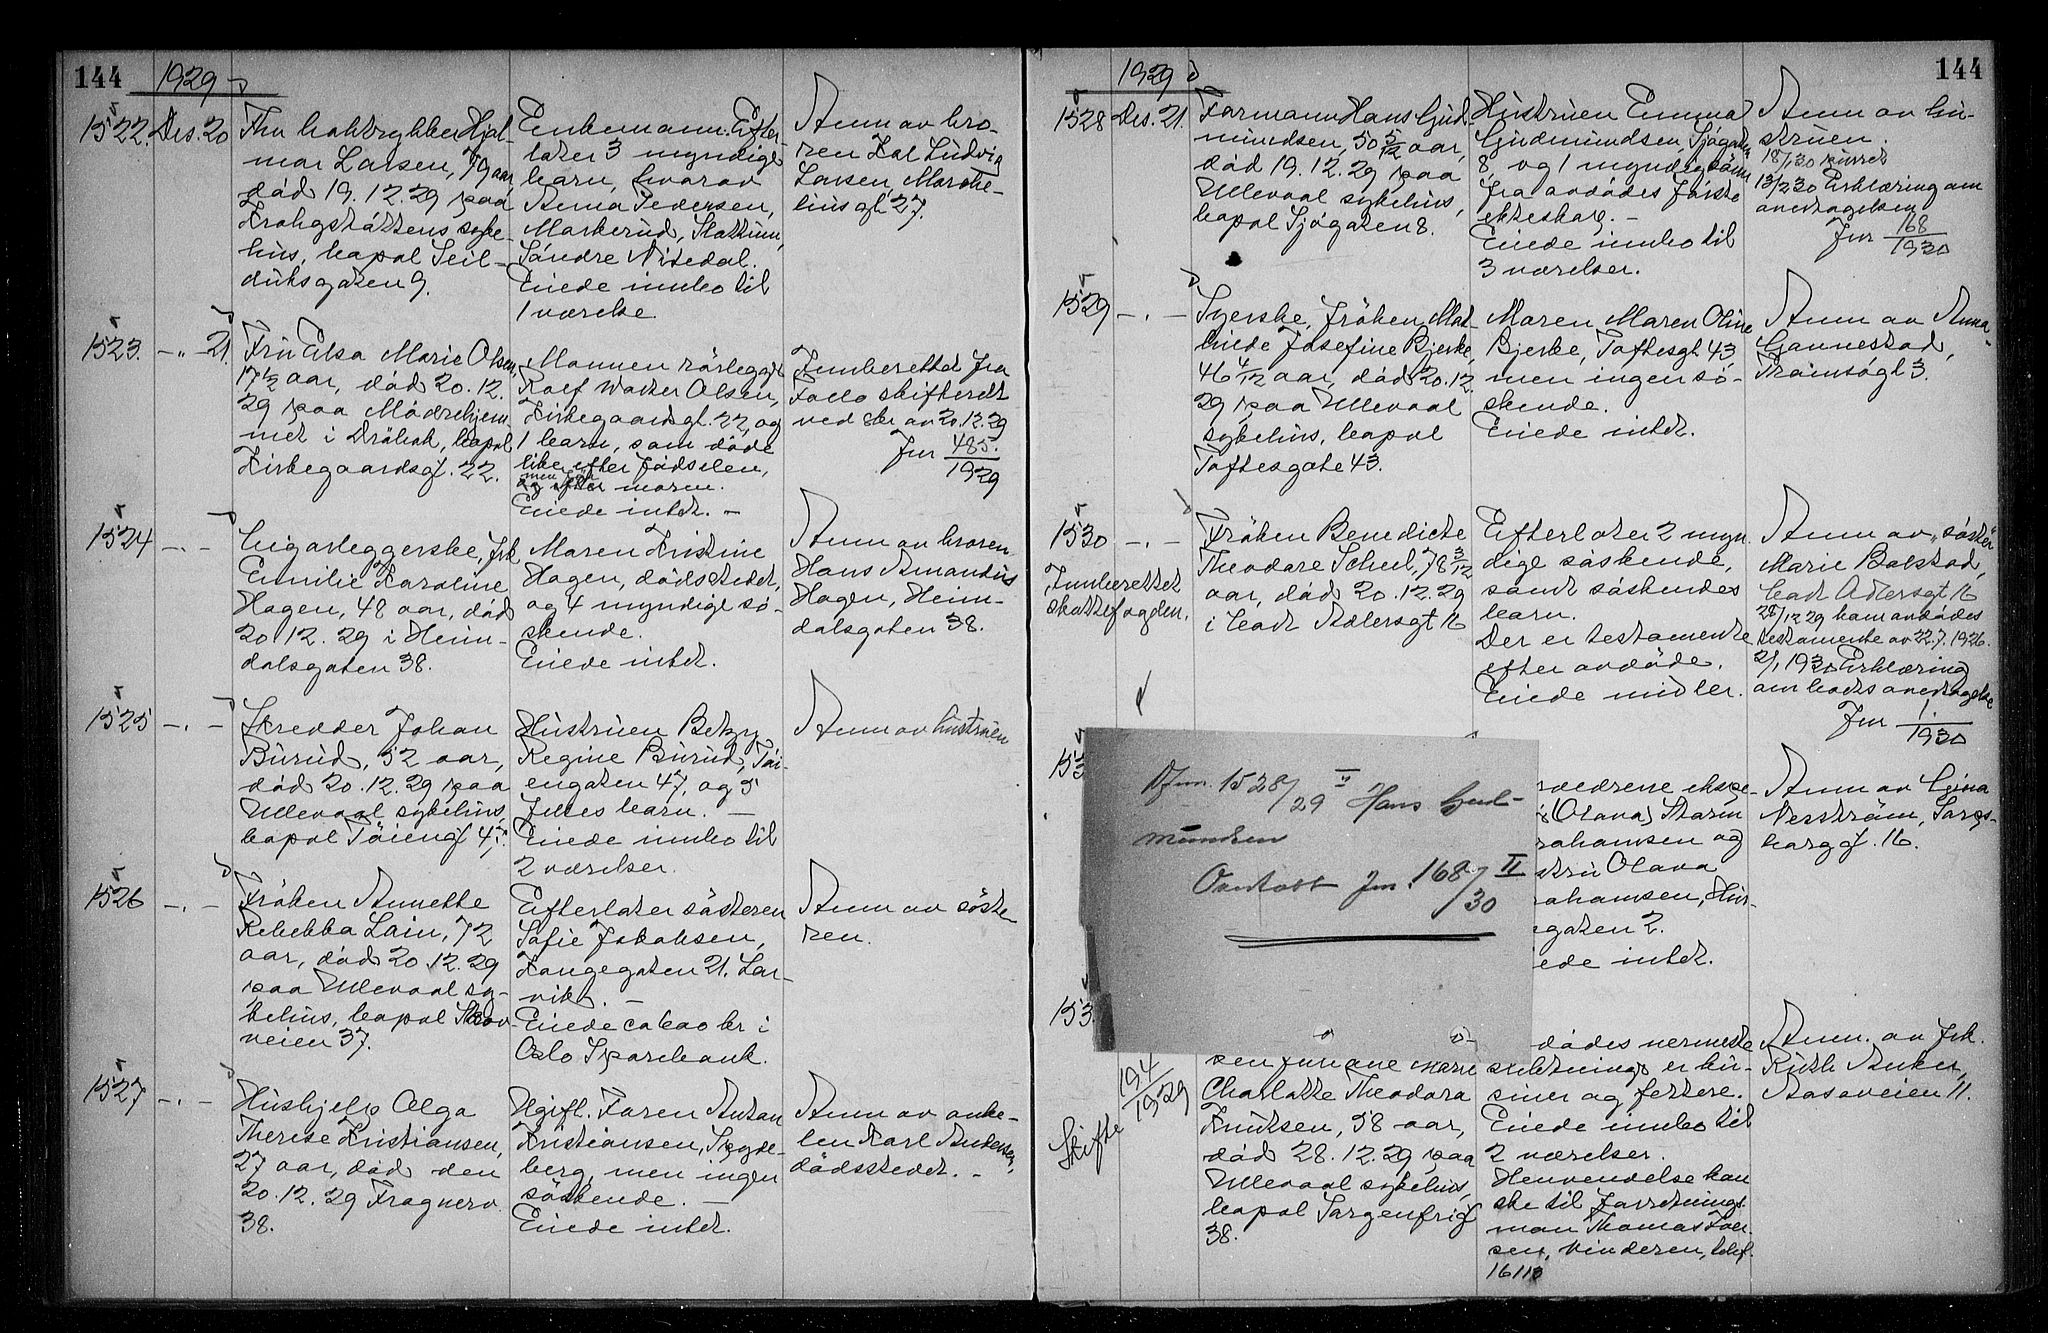 144 1929
1522. Des. 20
Fhv boktrykker Hjal-
mar Larsen, 79 aar,
död 19.12.29 paa
Krohgstöttens syke-
hus, bopæl Seil-
duksgaten 9.
Enkemann. Efter-
later 3 myndige
barn, hvorav
Anna Pedersen,
Markerud, Slattum,
Söndre Nitedal.
Eiede innbo til
1 værelse.
Anm av bro-
ren Kal Ludvig
Larsen, Marste-
linsgt 27.
1523. -"- 21.
Fru Elsa Marie Olsen,
17 1/2 aar, död 20.12.
29 paa Mödrehjem-
met i Dröbak, bopæl
Kirkegaardsgt. 22.
Mannen rörlegger
Rolf Walter Olsen,
Kirkegaardsgt. 22, og
1 barn, som döde
like efter födselen,
men
og efter moren.
Eiede intet. -
Innberettet fra
Follo skifterett
ved skr av 20.12.29
Jnr 485.
1929
1524 -"-
Cigarleggerske, frk
Emilie Karoline
Hagen, 48 aar, död
20.12.29 i Heim-
dalsgaten 38.
Moren Kristine
Hagen, dödsstedet,
og 4 myndige sö-
skende.
Eiede intet.
Anm av broren
Hans Amandus
Hagen, Heim-
dalsgaten 38.
1525 -"-
Skredder Johan
Burud, 52 aar,
död 20.12.29 paa
Ullevaal sykehus,
bopæl Töiengt 47.
Hustruen Betzy
Regine Burud, Töi-
engaten 47, og 5
felles barn. -
Eiede innbo til
2 værelser.
Anm av hustruen
1526 -"-
Fröken Annette
Rebekka Lain, 72
aar, död 20.12.29
paa Ullevaal sy-
kehus, bopæl Skov-
veien 37.
Efterlater sösteren
Sofie Jakobsen,
Kongegaten 21. Lar-
vik. -
Eiede ca 600 kr i
Oslo Sparebank.
Anm av söste
ren.
1527 -"-
Hushjelp Olga
Therese Kristiansen,
27 aar, död den
20.12.29 Frognerv
38.
Ugift. Faren Anton
Kristiansen, Spyde-
berg, men ingen
söskende. -
Eiede intet.
Anm av onke-
len Karl Andersen,
dödsstedet. -
1929 144
1528 Des. 21.
Formann Hans Gud-
mundsen, 50 5/12 aar,
död 19.12.29 paa
Ullevaal sykehus,
bopæl Sjögaten 8.
Hustruen Emma
Gudmundsen, Sjögaten
8, og 1 myndig sönn
fra avdödes förste
ekteskap. -
Eiede innbo til
3 værelser.
Anm av hu-
struen.
18/1 30 purret
13/2 30 Erklæring om
overtagelsen
Jnr 168
1930
1529 -"-
Syerske, fröken Mat-
hilde Josefine Bjerke,
46 4/12 aar, död 20.12.
29 paa Ullevaal
sykehus, bopæl
Toftesgate 43.
Moren Maren Oline
Bjerke, Toftesgt 43
men ingen sö-
skende.
Eiede intet.
Anm av Anna
Gannestad,
Tromsögt 3.
1530 -"-
Innberettet
skattefogden.
Fröken Benedicte
Theodore Schul, 78 3/12
aar, död 20.12.29
i Cort Adlersgt 16
Efterlater 2 myn
dige söskende,
samt söskendes
barn.
Der er testamente
efter avdöde.
Eiede midler.
Anm av "söster"
Marie Bolstad,
Cort Adlersgt 16
28/12 29 kom avdödes
testamente av 22.7.1926.
2/1 1930 Erklæring
om boets overtagelse
Jnr 1.
1930
153
Ajnr. 1528/29 II Hans Gud-
mundsen
Overtatt Jnr. 168/30 II
edrene ekspe-
(Olava) Storm
rahamsen og
stru Olava
rahamsen,
gaten 2.
ede intet.
Anm av Gina
Nesström, Sarps-
borggt. 16.
153
Skifte 194
1929
sen Juliane Marie
Charlotte Theodora
Knutsen, 58 aar,
död 28.12.29 paa
Ullevaal sykehus,
bopæl Sorgenfrigt
38.
dödes nermeste
slektninge er ku-
siner og fettere.
Eiede innbo til
2 værelser.
Henvendelse kan
ske til forretnings
man Thomas
sen, Vinderen, telef.
16113
Anm. av frk.
Ruth Anker,
Aasaveien 11.